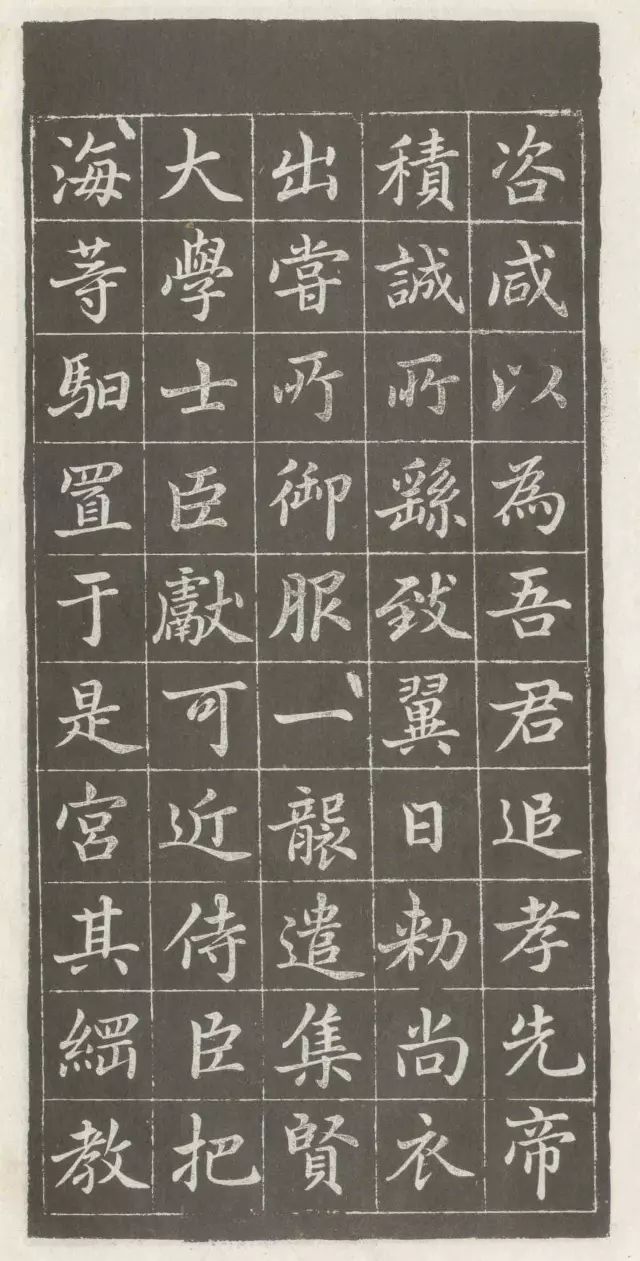 咨咸以為吾君追孝先帝
積誠所繇致翼日勑尚衣
出嘗所御服一襲遣集賢
大學士臣獻可近侍臣把
海䓁馹置于是宮其綱教